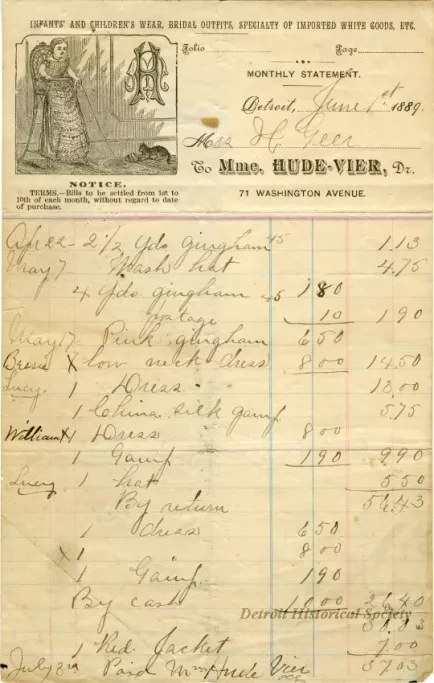 INFANTS' AND CHILDREN'S WEAR, BRIDAL OUTFITS, SPECIALTY OF IMPORTED WHITE GOODS, ETC.
Folio Page
MONTHLY STATEMENT.
Detroit, June 1st 1889.
H. Geer
To Mme. HUDE-VIER, Dr.
71 WASHINGTON AVENUE.
NOTICE.
TERMS.—Bills to be settled from 1st to
10th of each month, without regard to date
of purchase.
Apr 22 - 2 1/2 Yds gingham 45 1.13
May 7 Wash hat 4.75
4 Yds. gingham 45 1 80
postage 10 1 90
May 17 Pink gingham 6 50
X low neck dress 8 00 14.50
Lucy 1 Dress " " 13,00
1 China silk gamp 5.75
William X 1 Dress 8 00
1 Gamp 1 90 9 90
Lucy 1 hat 5 50
By return 56.43
1 dress 6 50
X 1 8 00
1 Gamp. 1 90
By cash 10 00 26.40
Detroit Historical Society
1 Red. Jacket 7.00
July 3rd Paid Mme Hude Vier 37.03